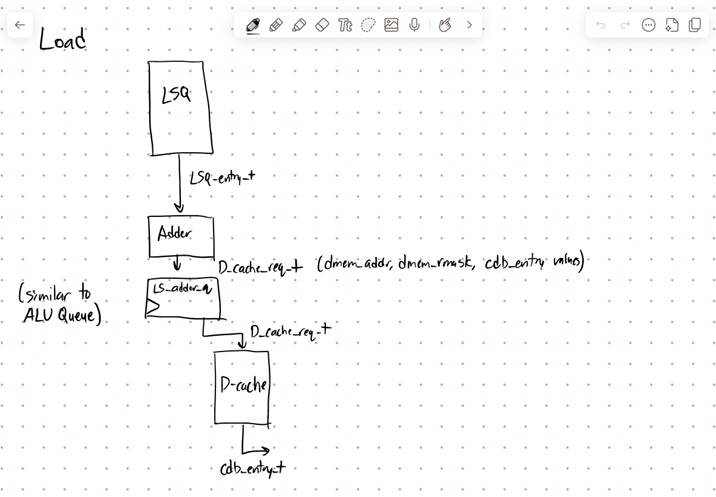 Load
LSQ
LSQ-entry-t
Adder
D_cache_req_t (dmem_addr, dmem_rmask, cdb_entry values)
LS_adder_q
(similar to
ALU Queue)
D_cache_req_t
D-cache
cdb_entry_t